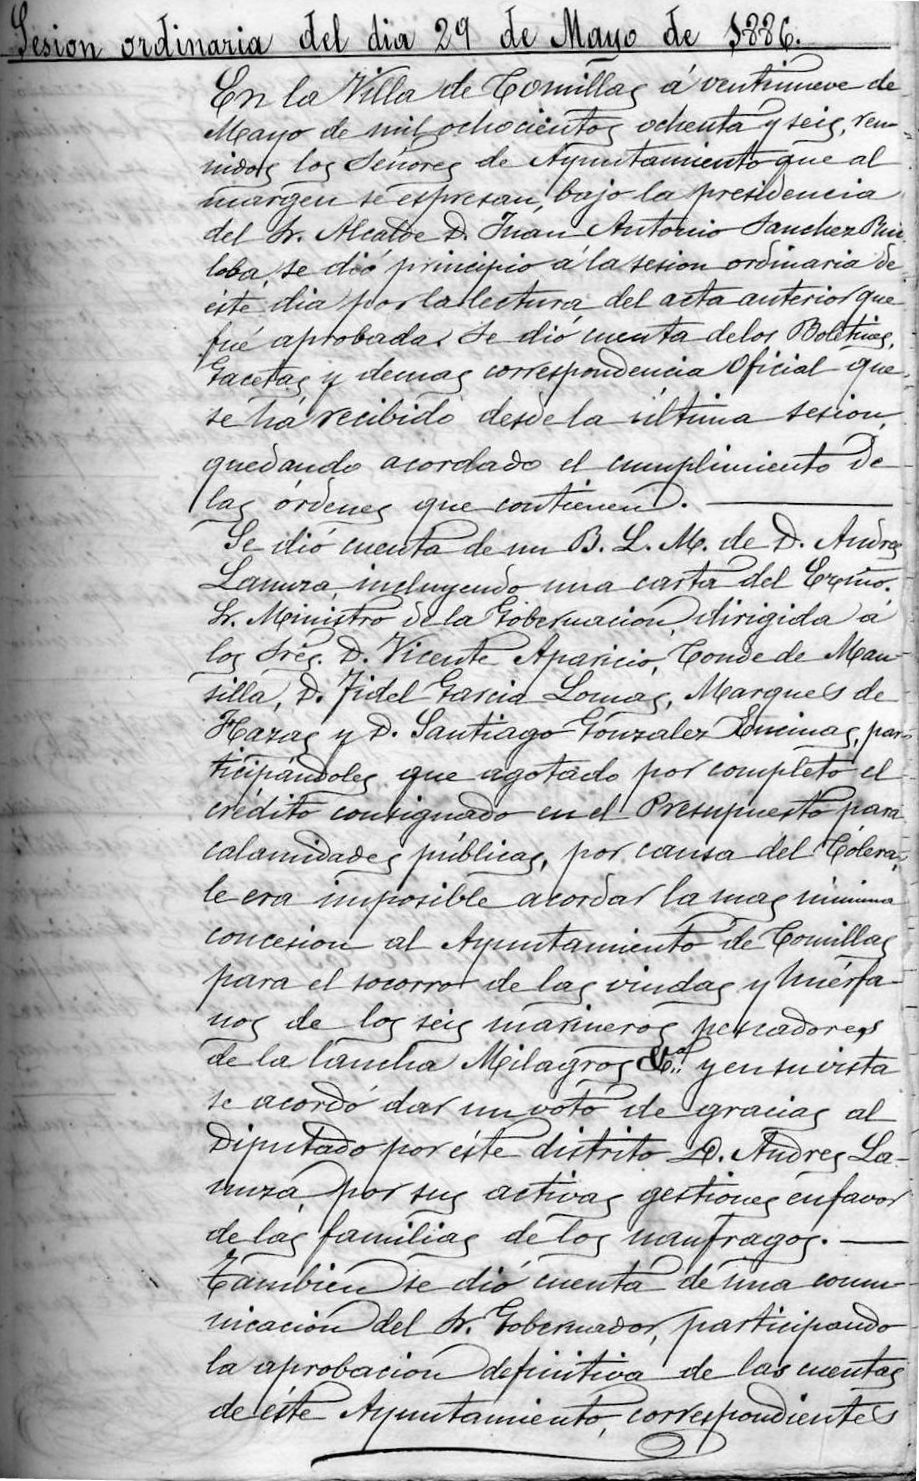 Sesion ordinaria del dia 29 de Mayo de 1886.
En la Villa de Comillas á ventinueve de
Mayo de mil ochocientos ochenta y seis, reu-
nidos los Señores de Ayuntamiento que al
margen se espresan, bajo la presidencia
del Sr. Alcalde D. Juan Antonio Sanchez Rui-
loba, se dió principio á la sesion ordinaria de
éste dia por la lectura del acta anterior que
fué aprobada. Se dió cuenta de los Boletines,
Gacetas y demas correspondencia Oficial que
se há recibido desde la última sesion,
quedando acordado el cumplimiento de
las órdenes que contienen.
Se dió cuenta de un B. L. M. de D. Andres
Lanuza, incluyendo una carta del Excmo.
Sr. Ministro de la Gobernacion, dirigida á
los Sres. D. Vicente Aparicio, Conde de Man-
silla, D. Fidel Garcia Lomas, Marques de
Hazas y D. Santiago Gonzalez Encinas, par-
ticipándoles que agotado por completo el
crédito consignado en el Presupuesto para
calamidades públicas, por causa del Cólera,
le era imposible acordar la mas minima
concesion al Ayuntamiento de Comillas
para el socorro de las viudas y huérfa-
nos de los seis marineros pescadores
de la lancha Milagros &.ª y en su vista
se acordó dar un voto de gracias al
Diputado por éste distrito D. Andres La-
nuza, por sus activas gestiones en favor
de las familias de los naufragos.
Tambien se dió cuenta de una comu-
nicacion del Sr. Gobernador, participando
la aprobacion definitiva de las cuentas
de éste Ayuntamiento, correspondientes